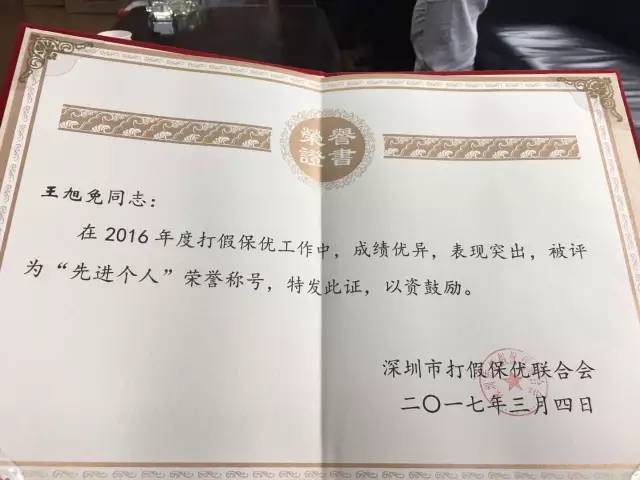 榮譽
證書
王旭兔同志：
在 2016 年度打假保优工作中，成绩优异，表现突出，被评
为“先进个人”荣誉称号，特发此证，以资鼓励。
深圳市打假保优联合会
二〇一七年三月四日